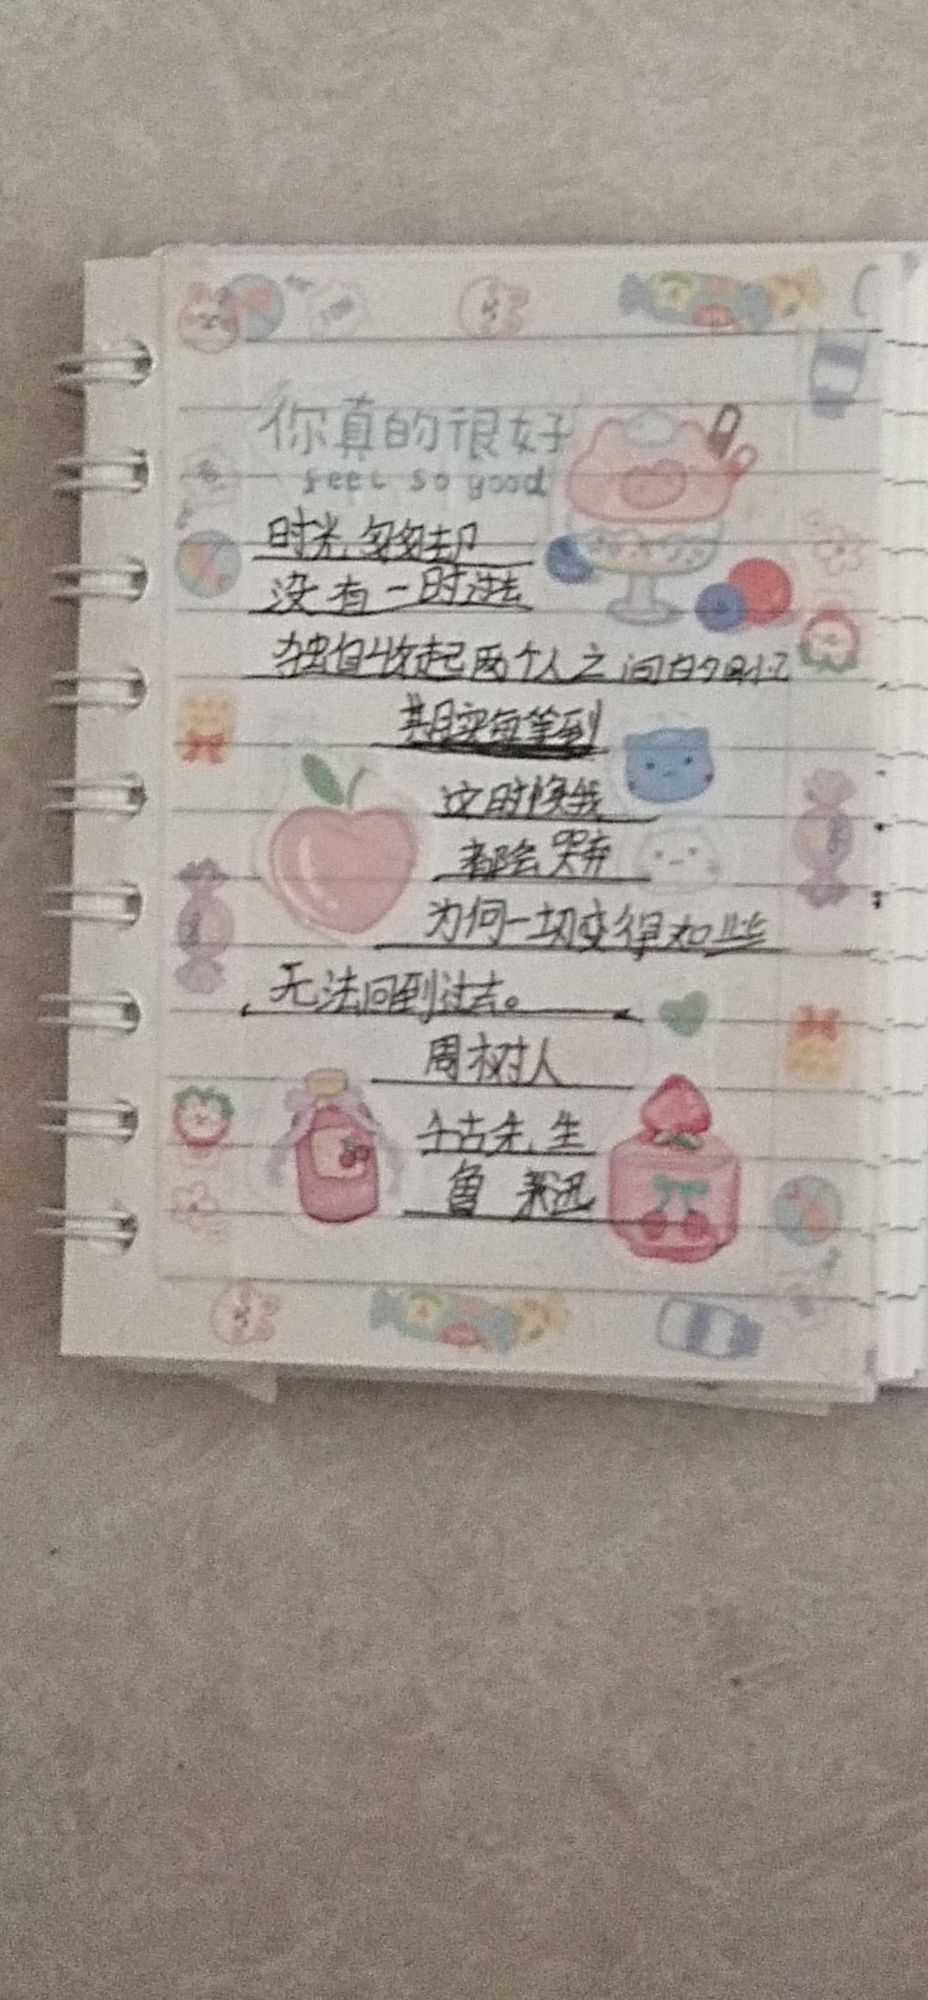 你真的很好
feel so good
时光,匆匆却
没有一时过去
独自收起两个人之间的
其实每等到
这时候我
都会哭奔
为何一切变得如些
无法回到过去。
周树人
千古先,生
鲁 迅